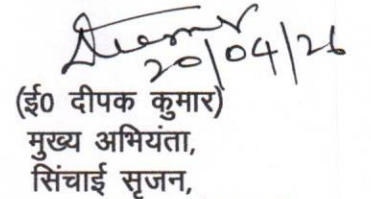 20/04/26
(ई0 दीपक कुमार)
मुख्य अभियंता,
सिंचाई सृजन,